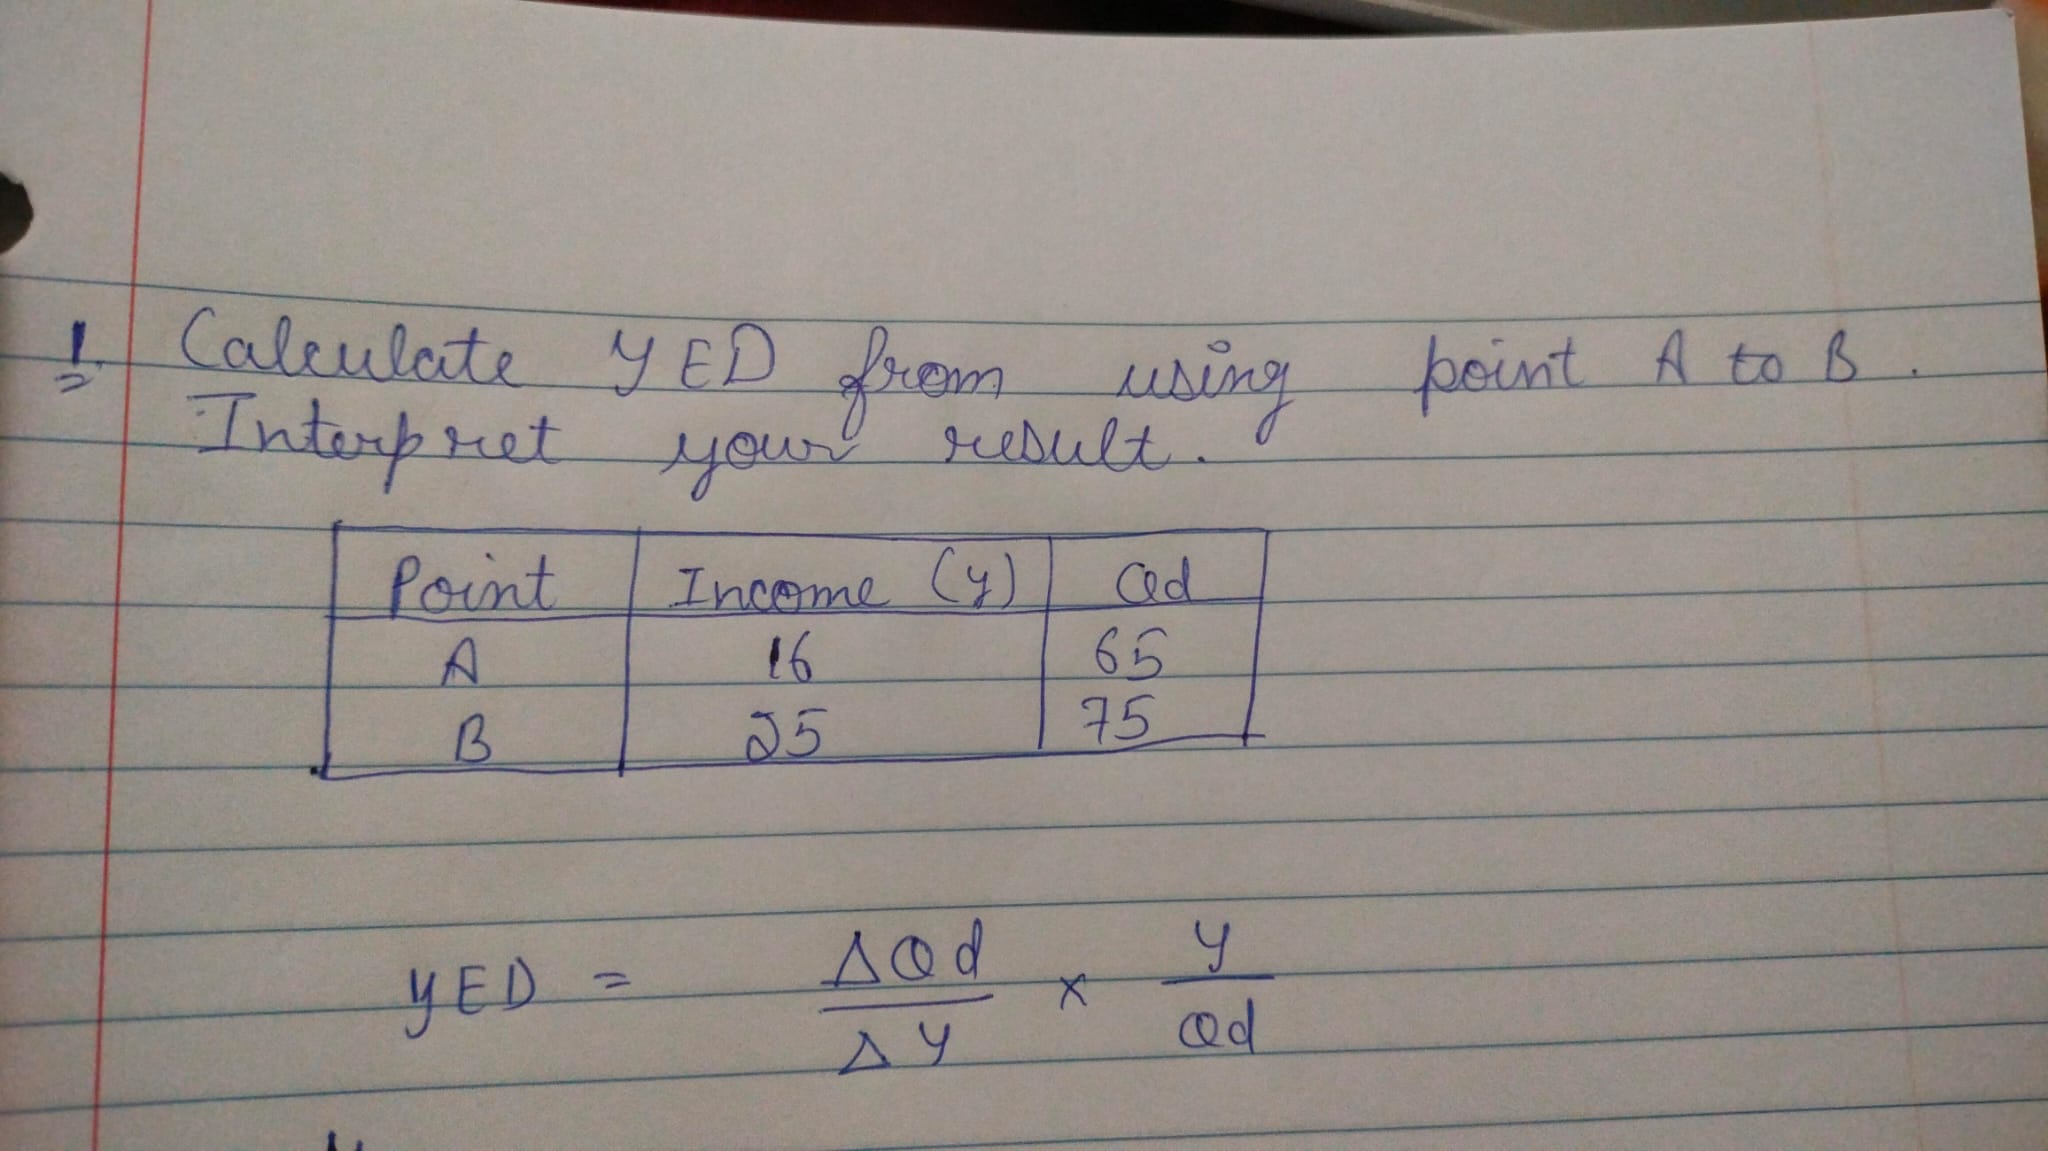 1. Calculate YED from using point A to B.
Interpret your result.
Point Income (y) Qd
A 16 65
B 25 75
YED = ΔQd / ΔY × Y / Qd